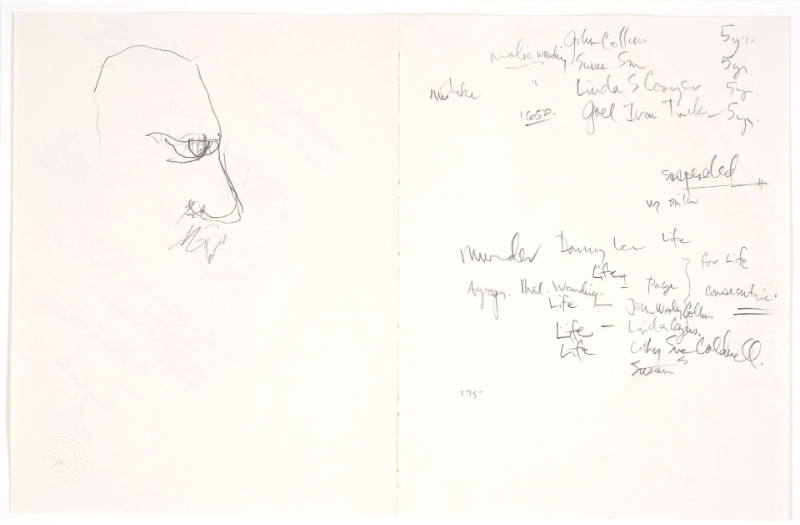 John Collins 5 yr.
malic wounding Susan Sue 5 yr
" Linda S Conyer 5 yr.
1650. Joel Ivan Tucker 5 yr.
suspended
Murder Danny Lee Life
for Life
Life - Page
Aggrav. Mal. Wounding. consecutive.
Life - John Wesley Collins
Life - Linda
Life Cathy Sue Caldwell.
Susan
175